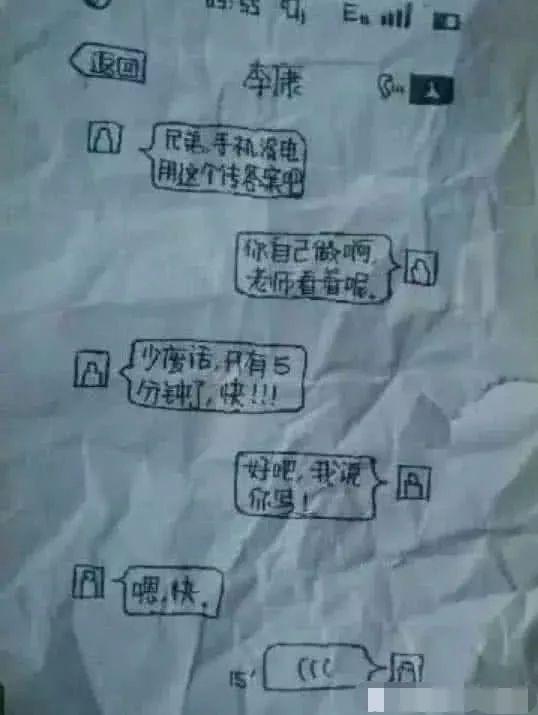 返回
李康
兄弟，手机没电
用这个传答案吧
你自己做啊，
老师看着呢。
少废话，只有5
分钟了，快!!!
好吧，我说
你写!
嗯，快。
15'
(((